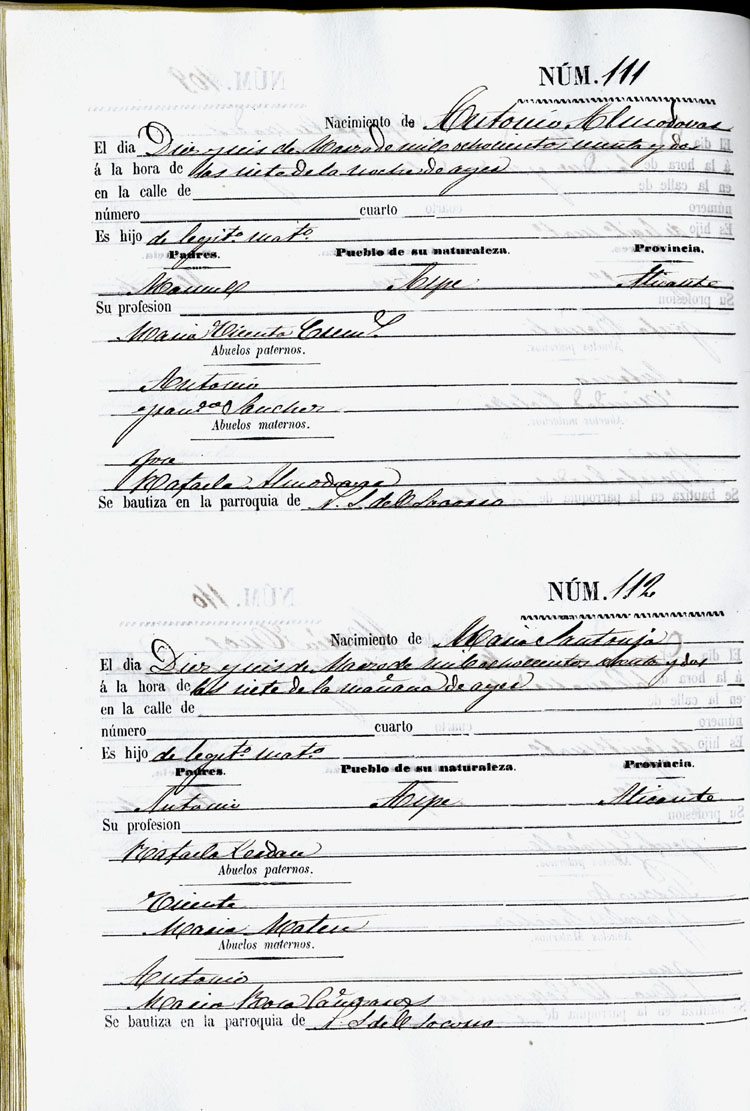 NÚM. 111
Nacimiento de Antonio Almodovar
El dia Diez y seis de Marzo de mil ochocientos setenta y dos
á la hora de las siete de la noche de ayer
en la calle de
número cuarto
Es hijo de legit.º mat.º
Padres. Pueblo de su naturaleza. Provincia.
Manuel Aspe Alicante
Su profesion
Maria Vicenta
Abuelos paternos.
Antonio
Fran.ca Sanchez
Abuelos maternos.
Jose
Rafaela Almodovar
Se bautiza en la parroquia de N. S. del Socorro
NÚM. 112
Nacimiento de Maria Santonja
El dia Diez y seis de Marzo de mil ochocientos setenta y dos
á la hora de las siete de la mañana de ayer
en la calle de
número cuarto
Es hijo de legit.º mat.º
Padres. Pueblo de su naturaleza. Provincia.
Antonio Aspe Alicante
Su profesion
Rafaela Cerdan
Abuelos paternos.
Vicente
Maria Mateu
Abuelos maternos.
Antonio
Maria Rosa Cañizares
Se bautiza en la parroquia de N. S. del Socorro